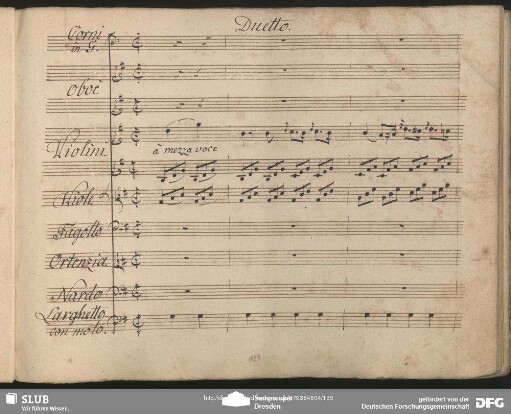 Duetto.
Corni
in G.
Oboè
Violini
à mezza voce
Viole
Fagotto
Ortenzia
Nardo
Larghetto
con moto.
SLUB
Wir führen Wissen.
Dresden
gefördert von der
Deutschen Forschungsgemeinschaft
DFG